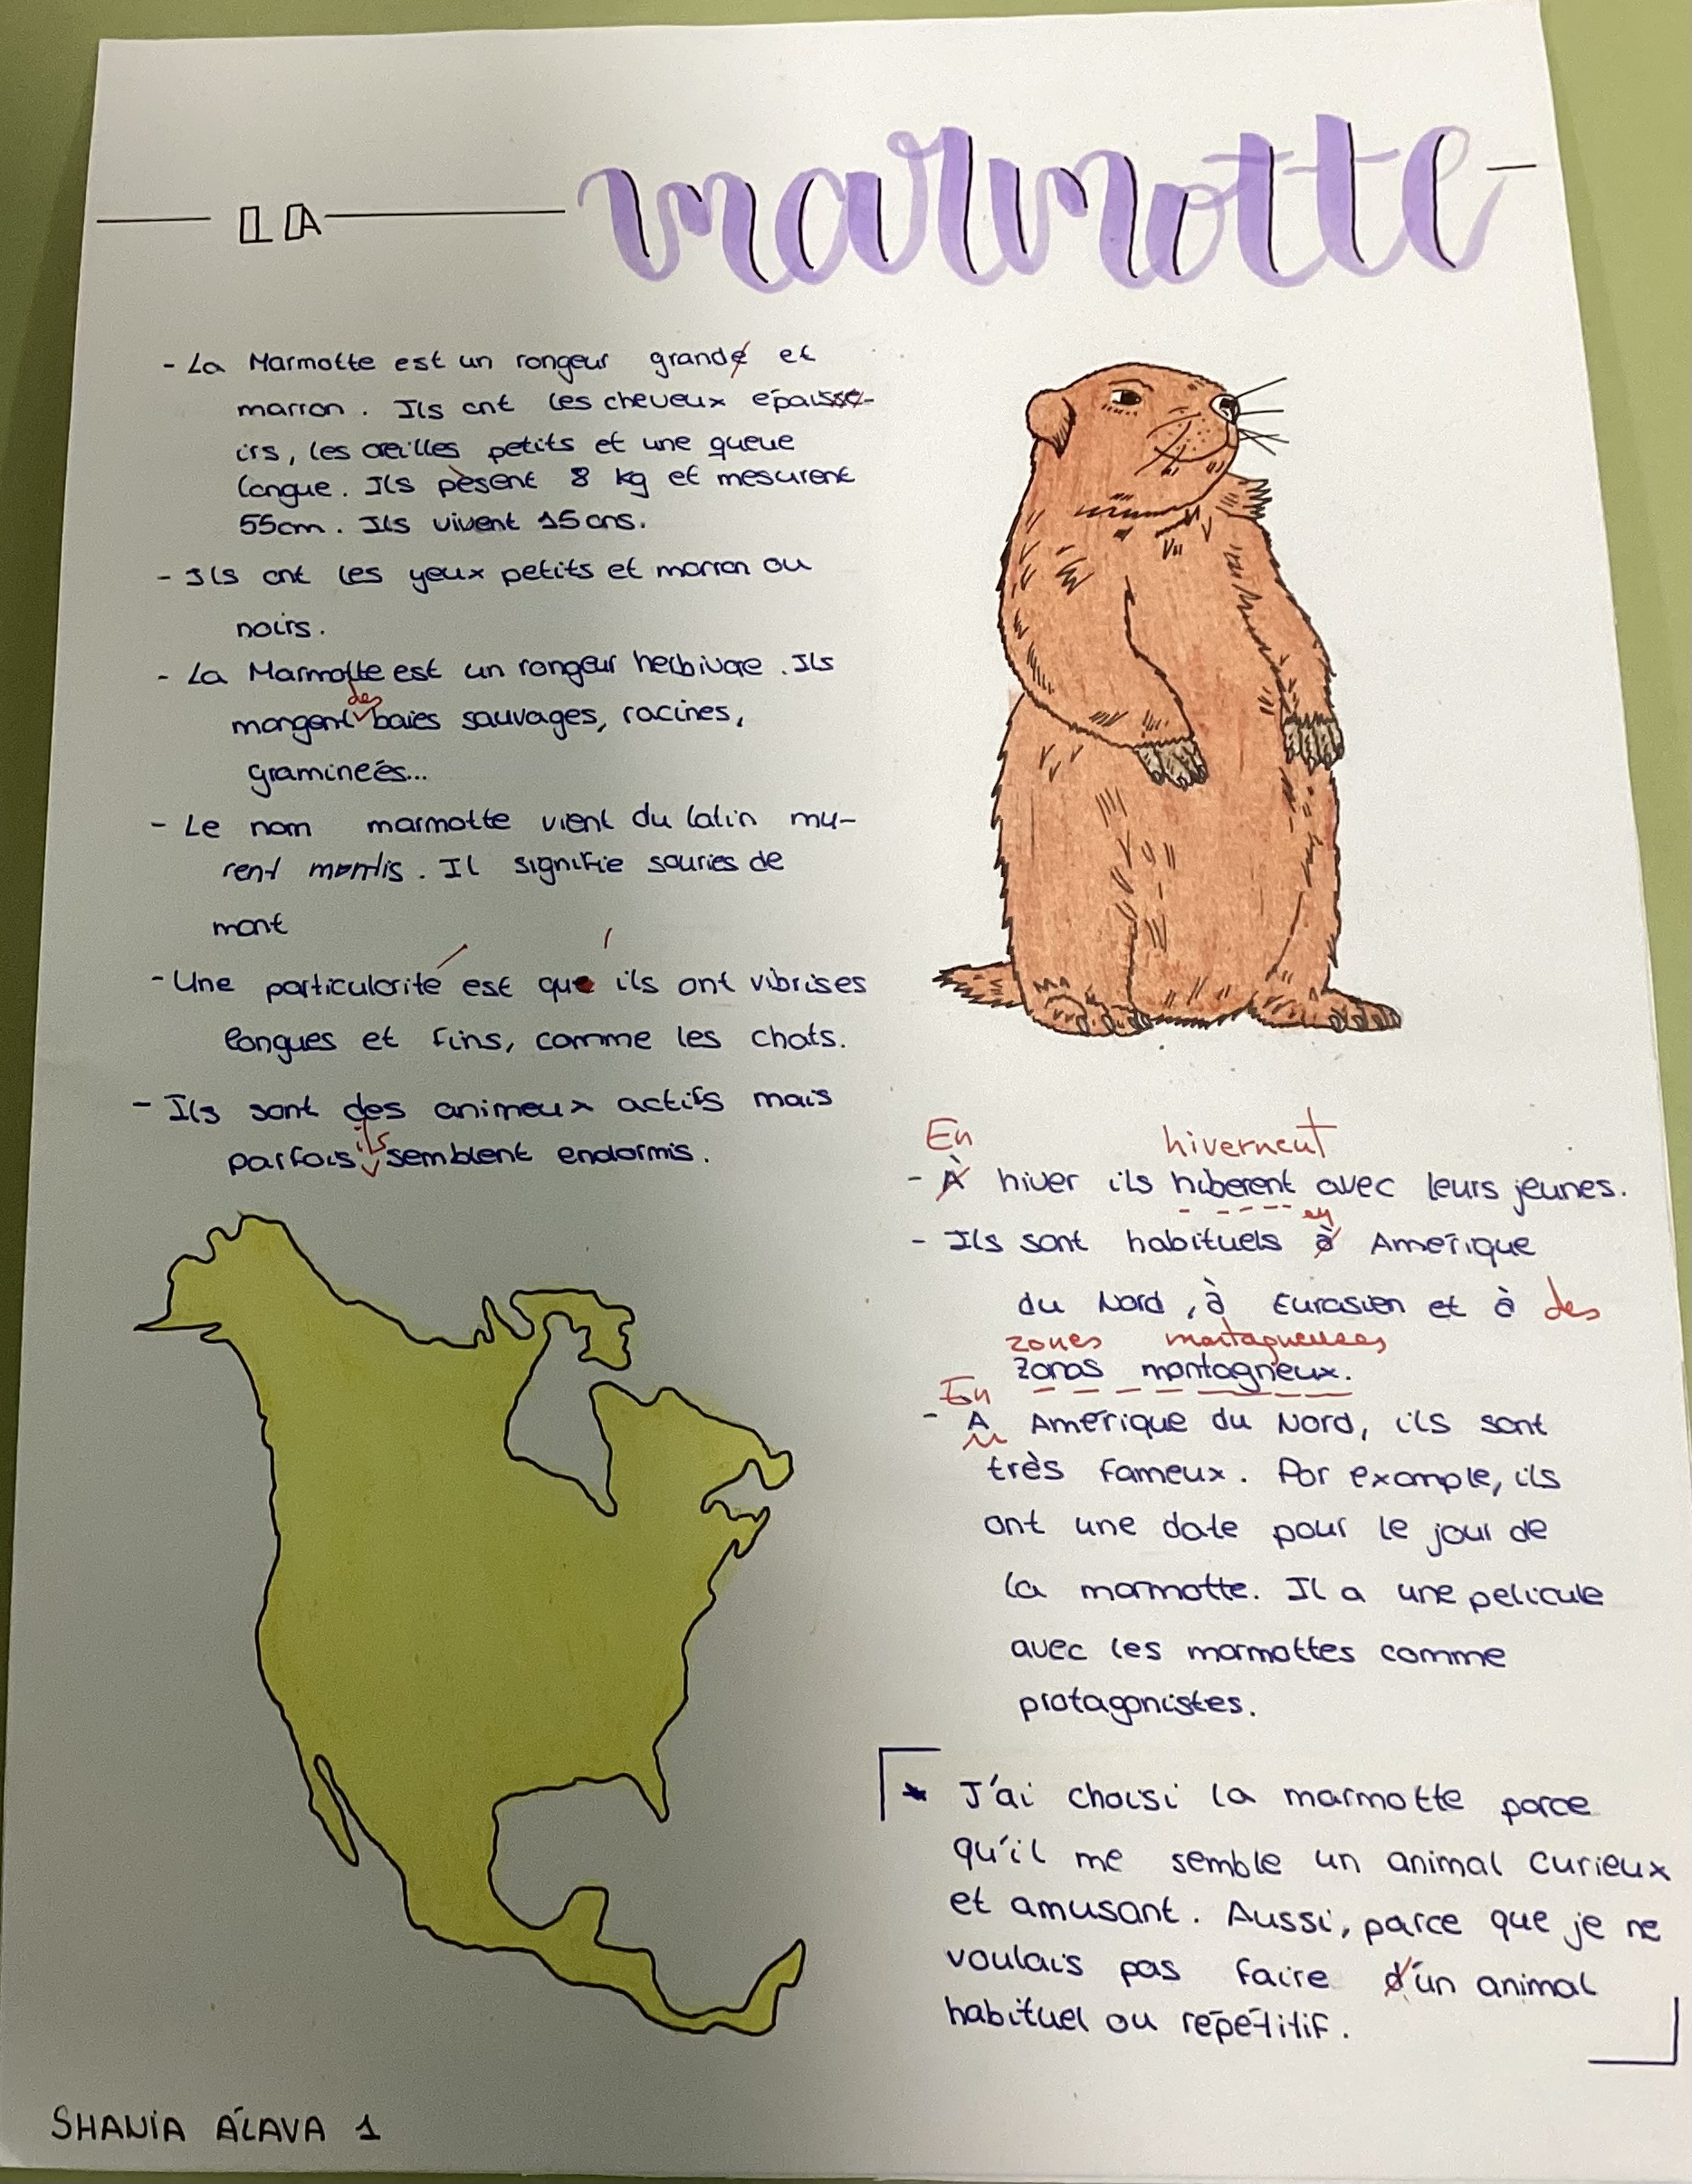 LA marmotte
- La Marmotte est un rongeur grande et
marron. Ils ont les cheveux epaisse-
irs, les oreilles petits et une queue
longue. Ils pèsent 8 kg et mesurent
55cm. Ils vivent 15 ans.
- Ils ont les yeux petits et marron ou
noirs.
- La Marmotte est un rongeur herbivore. Ils
des
mangent baies sauvages, racines,
graminées...
- Le nom marmotte vient du latin mu-
rent montis. Il signifie souries de
mont
- Une particularité est que ils ont vibrises
longues et fins, comme les chats.
- Ils sont des animeux actifs mais
ils
parfois semblent endormis.
En hivernent
- À hiver ils hiberent avec leurs jeunes.
en
- Ils sont habituels à Amérique
du Nord, à Eurasien et à des
zones montagneuses
zonas montagneux.
En
- A Amérique du Nord, ils sont
très fameux. Por example, ils
ont une date pour le jour de
la marmotte. Il a une pelicule
avec les marmottes comme
protagonistes.
* J'ai choisi la marmotte parce
qu'il me semble un animal curieux
et amusant. Aussi, parce que je ne
voulais pas faire d'un animal
habituel ou répétitif.
SHANIA ÁLAVA 1